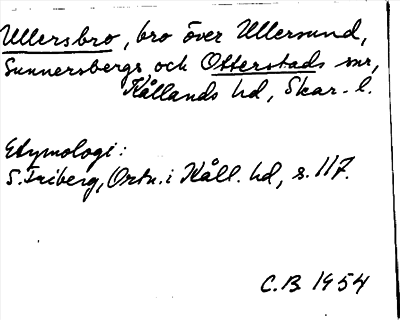 Ullersbro, bro över Ullersund,
Sunnersbergs och Otterstads snr,
Kållands hd, Skar. l.
Etymologi:
S. Friberg, Ortn. i Kåll. hd, s. 117.
C.B 1954